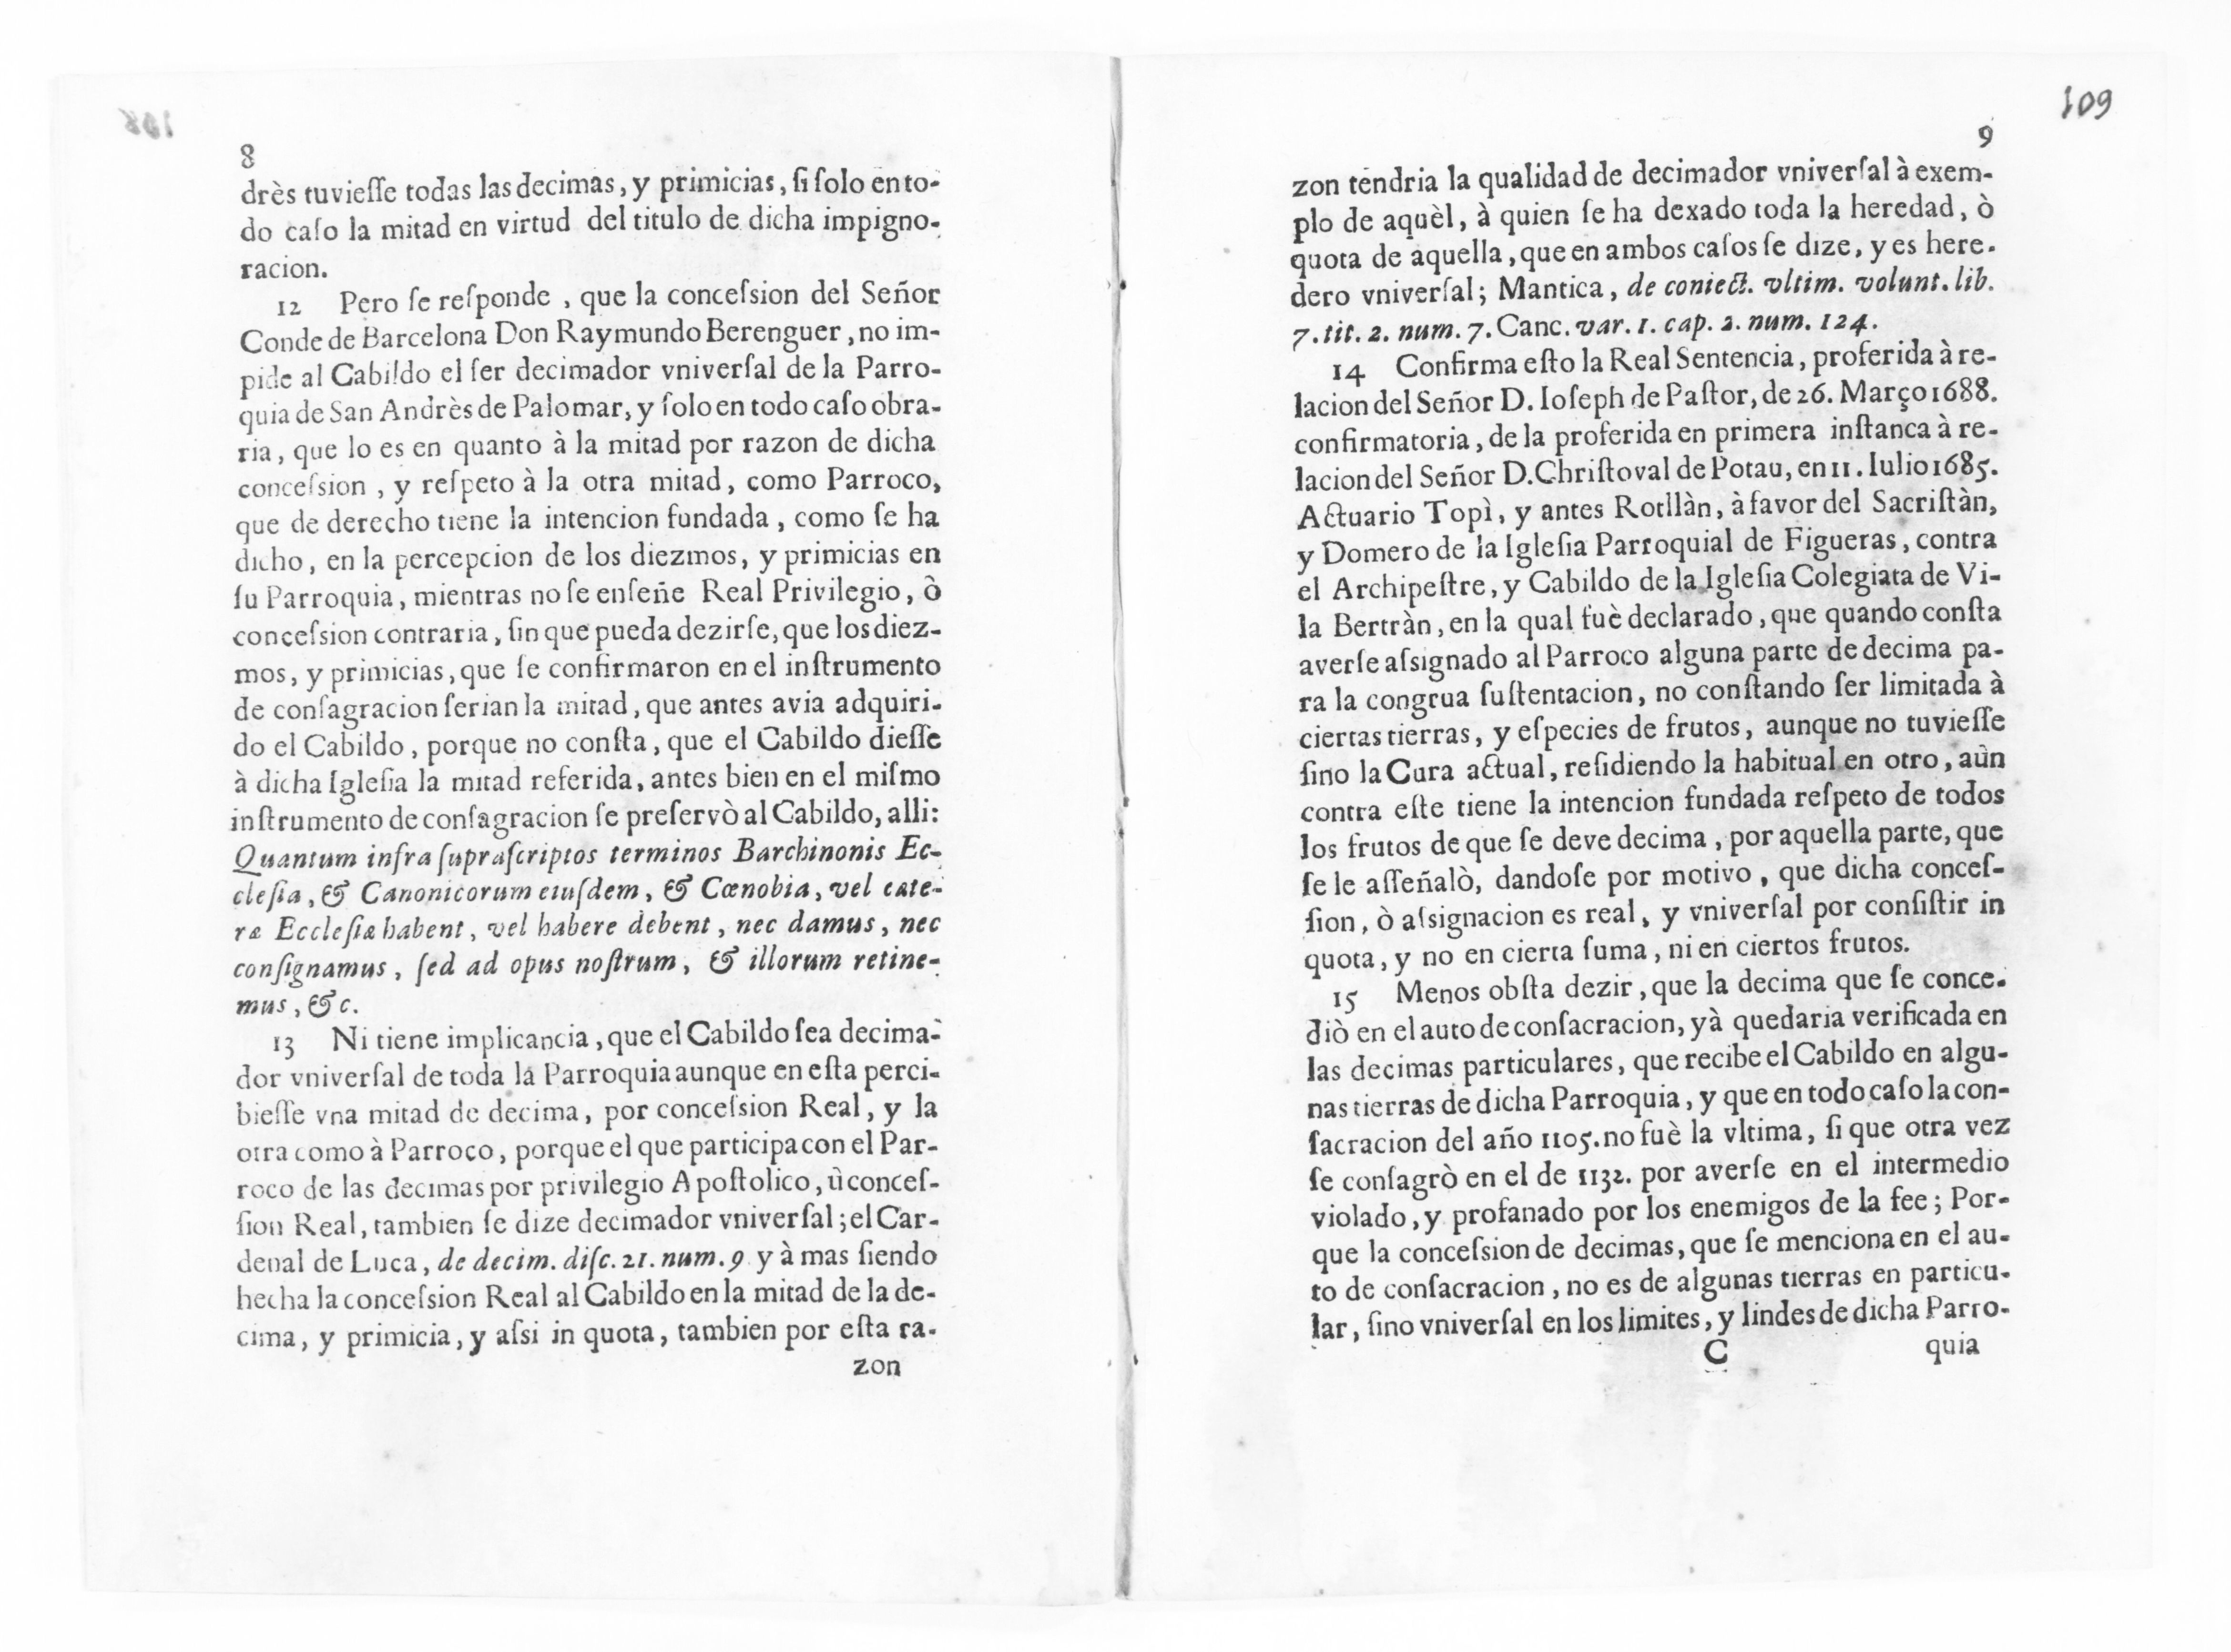 8
drès tuvieſſe todas las decimas, y primicias, ſi ſolo en to-
do caſo la mitad en virtud del titulo de dicha impigno-
racion.
12 Pero ſe reſponde, que la conceſsion del Señor
Conde de Barcelona Don Raymundo Berenguer, no im-
pide al Cabildo el ſer decimador vniverſal de la Parro-
quia de San Andrès de Palomar, y ſolo en todo caſo obra-
ria, que lo es en quanto à la mitad por razon de dicha
conceſsion, y reſpeto à la otra mitad, como Parroco,
que de derecho tiene la intencion fundada, como ſe ha
dicho, en la percepcion de los diezmos, y primicias en
ſu Parroquia, mientras no ſe enſeñe Real Privilegio, ò
conceſsion contraria, ſin que pueda dezirſe, que los diez-
mos, y primicias, que ſe confirmaron en el inſtrumento
de conſagracion ſerian la mitad, que antes avia adquiri-
do el Cabildo, porque no conſta, que el Cabildo dieſſe
à dicha Igleſia la mitad referida, antes bien en el miſmo
inſtrumento de conſagracion ſe preſervò al Cabildo, alli:
Quantum infra ſupraſcriptos terminos Barchinonis Ec-
cleſia, & Canonicorum eiuſdem, & Cœnobia, vel cate-
ræ Eccleſiæ habent, vel habere debent, nec damus, nec
conſignamus, ſed ad opus noſtrum, & illorum retine-
mus, &c.
13 Ni tiene implicancia, que el Cabildo ſea decima-
dor vniverſal de toda la Parroquia aunque en eſta perci-
bieſſe vna mitad de decima, por conceſsion Real, y la
otra como à Parroco, porque el que participa con el Par-
roco de las decimas por privilegio Apoſtolico, ù conceſ-
ſion Real, tambien ſe dize decimador vniverſal; el Car-
denal de Luca, de decim. diſc. 21. num. 9 y à mas ſiendo
hecha la conceſsion Real al Cabildo en la mitad de la de-
cima, y primicia, y aſsi in quota, tambien por eſta ra-
zon
109
9
zon tendria la qualidad de decimador vniverſal à exem-
plo de aquèl, à quien ſe ha dexado toda la heredad, ò
quota de aquella, que en ambos caſos ſe dize, y es here-
dero vniverſal; Mantica, de coniect. vltim. volunt. lib.
7. tit. 2. num. 7. Canc. var. 1. cap. 2. num. 124.
14 Confirma eſto la Real Sentencia, proferida à re-
lacion del Señor D. Ioſeph de Paſtor, de 26. Março 1688.
confirmatoria, de la proferida en primera inſtanca à re-
lacion del Señor D. Chriſtoval de Potau, en 11. Iulio 1685.
Actuario Topì, y antes Rotllàn, à favor del Sacriſtàn,
y Domero de la Igleſia Parroquial de Figueras, contra
el Archipeſtre, y Cabildo de la Igleſia Colegiata de Vi-
la Bertràn, en la qual fuè declarado, que quando conſta
averſe aſsignado al Parroco alguna parte de decima pa-
ra la congrua ſuſtentacion, no conſtando ſer limitada à
ciertas tierras, y eſpecies de frutos, aunque no tuvieſſe
ſino la Cura actual, reſidiendo la habitual en otro, aùn
contra eſte tiene la intencion fundada reſpeto de todos
los frutos de que ſe deve decima, por aquella parte, que
ſe le aſſeñalò, dandoſe por motivo, que dicha conceſ-
ſion, ò aſsignacion es real, y vniverſal por conſiſtir in
quota, y no en cierta ſuma, ni en ciertos frutos.
15 Menos obſta dezir, que la decima que ſe conce-
diò en el auto de conſacracion, yà quedaria verificada en
las decimas particulares, que recibe el Cabildo en algu-
nas tierras de dicha Parroquia, y que en todo caſo la con-
ſacracion del año 1105. no fuè la vltima, ſi que otra vez
ſe conſagrò en el de 1132. por averſe en el intermedio
violado, y profanado por los enemigos de la fee; Por-
que la conceſsion de decimas, que ſe menciona en el au-
to de conſacracion, no es de algunas tierras en particu-
lar, ſino vniverſal en los limites, y lindes de dicha Parro-
C quia